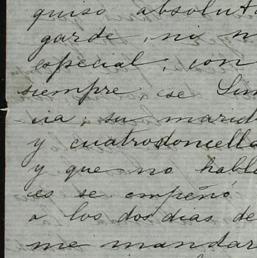 quiso absolut
garde, no n
especial, con
siempre, se Sim
cia, su marid
y cuatro doncella
y que no habl
es se empeñó
a los dos dias de
me mandar